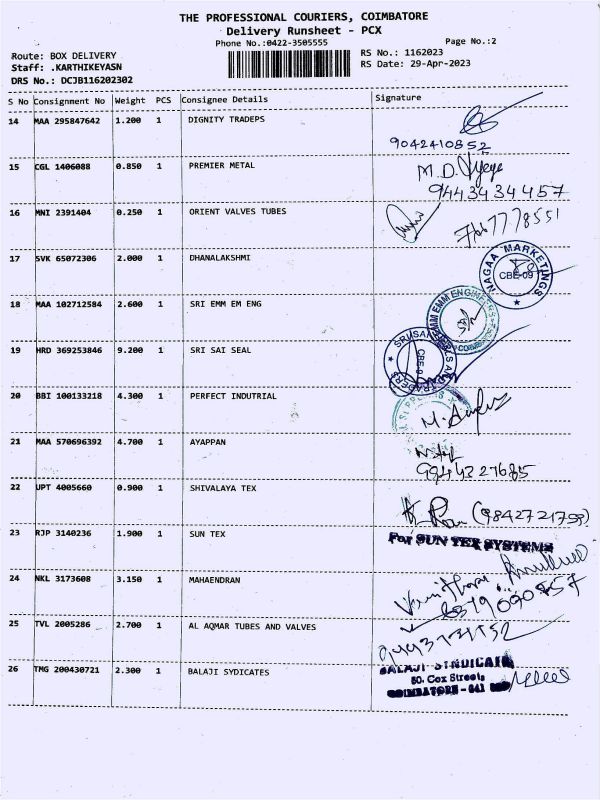 THE PROFESSIONAL COURIERS, COIMBATORE
Delivery Runsheet - PCX
Phone No.:0422-3505555
Page No.:2
Route: BOX DELIVERY
RS No.: 1162023
Staff: .KARTHIKEYASN
RS Date: 29-Apr-2023
DRS No.: DCJB116202302
S No Consignment No Weight PCS Consignee Details Signature
14 MAA 295847642 1.200 1 DIGNITY TRADEPS
9042410852
15 CGL 1406088 0.850 1 PREMIER METAL
M.D.
9443434457
16 MNI 2391404 0.250 1 ORIENT VALVES TUBES
7667778551
17 SVK 65072306 2.000 1 DHANALAKSHMI
NAGAA MARKETINGS
CBE-09
18 MAA 102712584 2.600 1 SRI EMM EM ENG
19 HRD 369253846 9.200 1 SRI SAI SEAL
20 BBI 100133218 4.300 1 PERFECT INDUTRIAL
21 MAA 570696392 4.700 1 AYAPPAN
9944327685
22 UPT 4005660 0.900 1 SHIVALAYA TEX
(9842721799)
23 RJP 3140236 1.900 1 SUN TEX
For SUN TEX SYSTEMS
24 NKL 3173608 3.150 1 MAHAENDRAN
25 TVL 2005286 2.700 1 AL AQMAR TUBES AND VALVES
26 TMG 200430721 2.300 1 BALAJI SYDICATES
BALAJI SYNDICATE
80. Cox Street,
COIMBATORE - 641